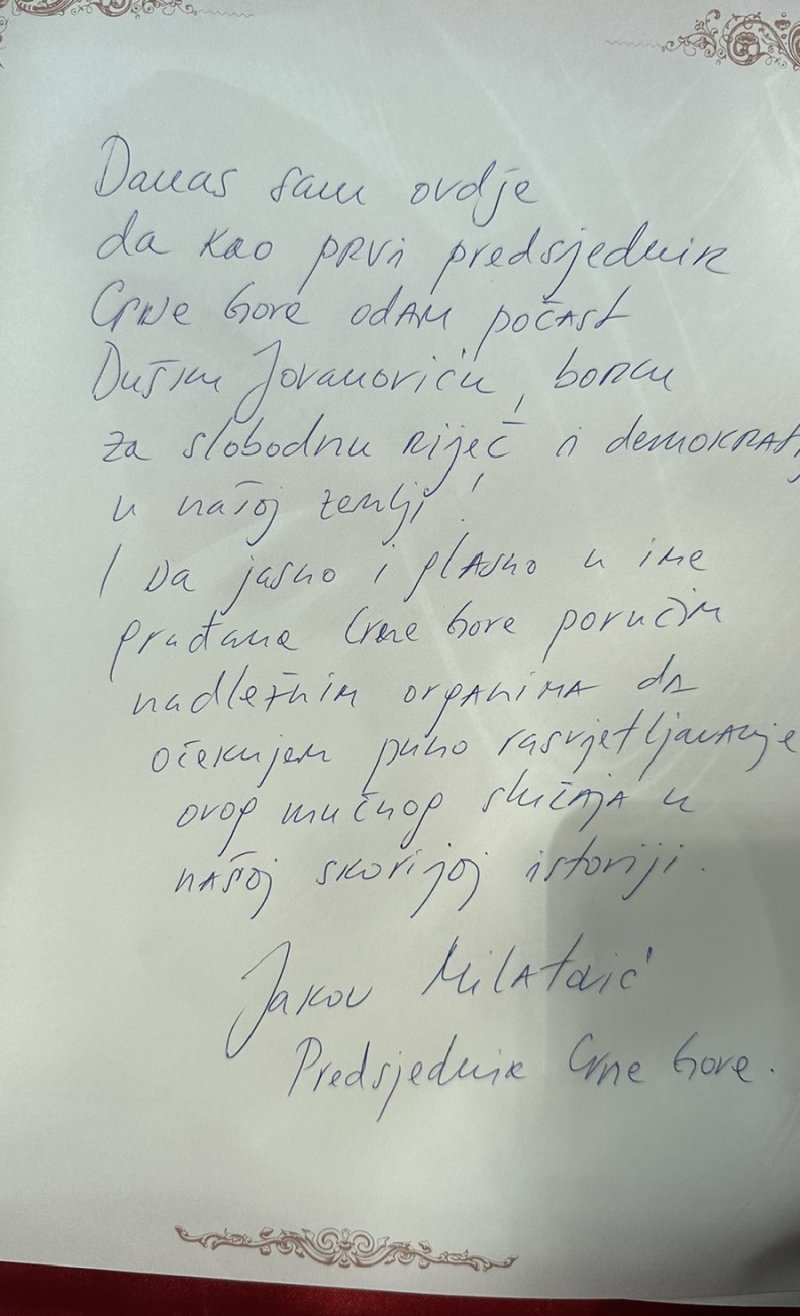 Danas sam ovdje
da kao prvi predsjednik
Crne Gore odam počast
Dušku Jovanoviću, borcu
za slobodnu riječ i demokratij
u našoj zemlji!
I da jasno i glasno u ime
građana Crne Gore poručim
nadležnim organima da
očekujem puno rasvjetljavanje
ovog mučnog slučaja u
našoj skorijoj istoriji.
Jakov Milatović
Predsjednik Crne Gore.